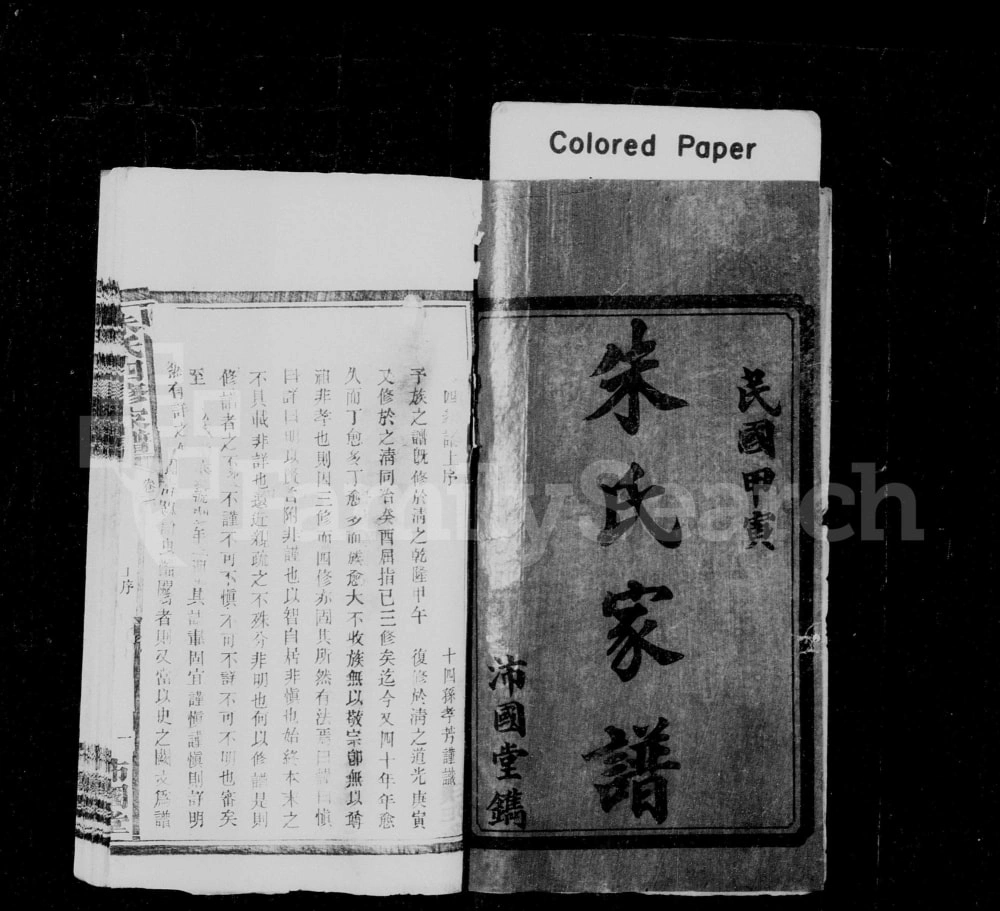 Colored Paper
民國甲寅
朱氏家譜
沛國堂鐫
四修譜上序
十四孫孝芳謹識
予族之譜既修於清之乾隆甲午 復修於清之道光庚寅
又修於之清同治癸酉屈指已三修矣迄今又四十年年愈
久而丁愈多丁愈多而族愈大不收族無以敬宗卽無以尊
祖非孝也則因三修而四修亦固其所然有法焉曰謹曰愼
曰詳曰明以 附非謹也以智自居非愼也始終本末之
不具載非詳也遠近親疏之不殊分非明也何以修譜是則
修譜者之不 不謹不可不愼不可不詳不可不明也審矣
至 其 固宜謹愼謹愼則詳明
者則又當以史之國 爲譜
朱氏四修家譜
卷
上序
一
沛國堂
FamilySearch